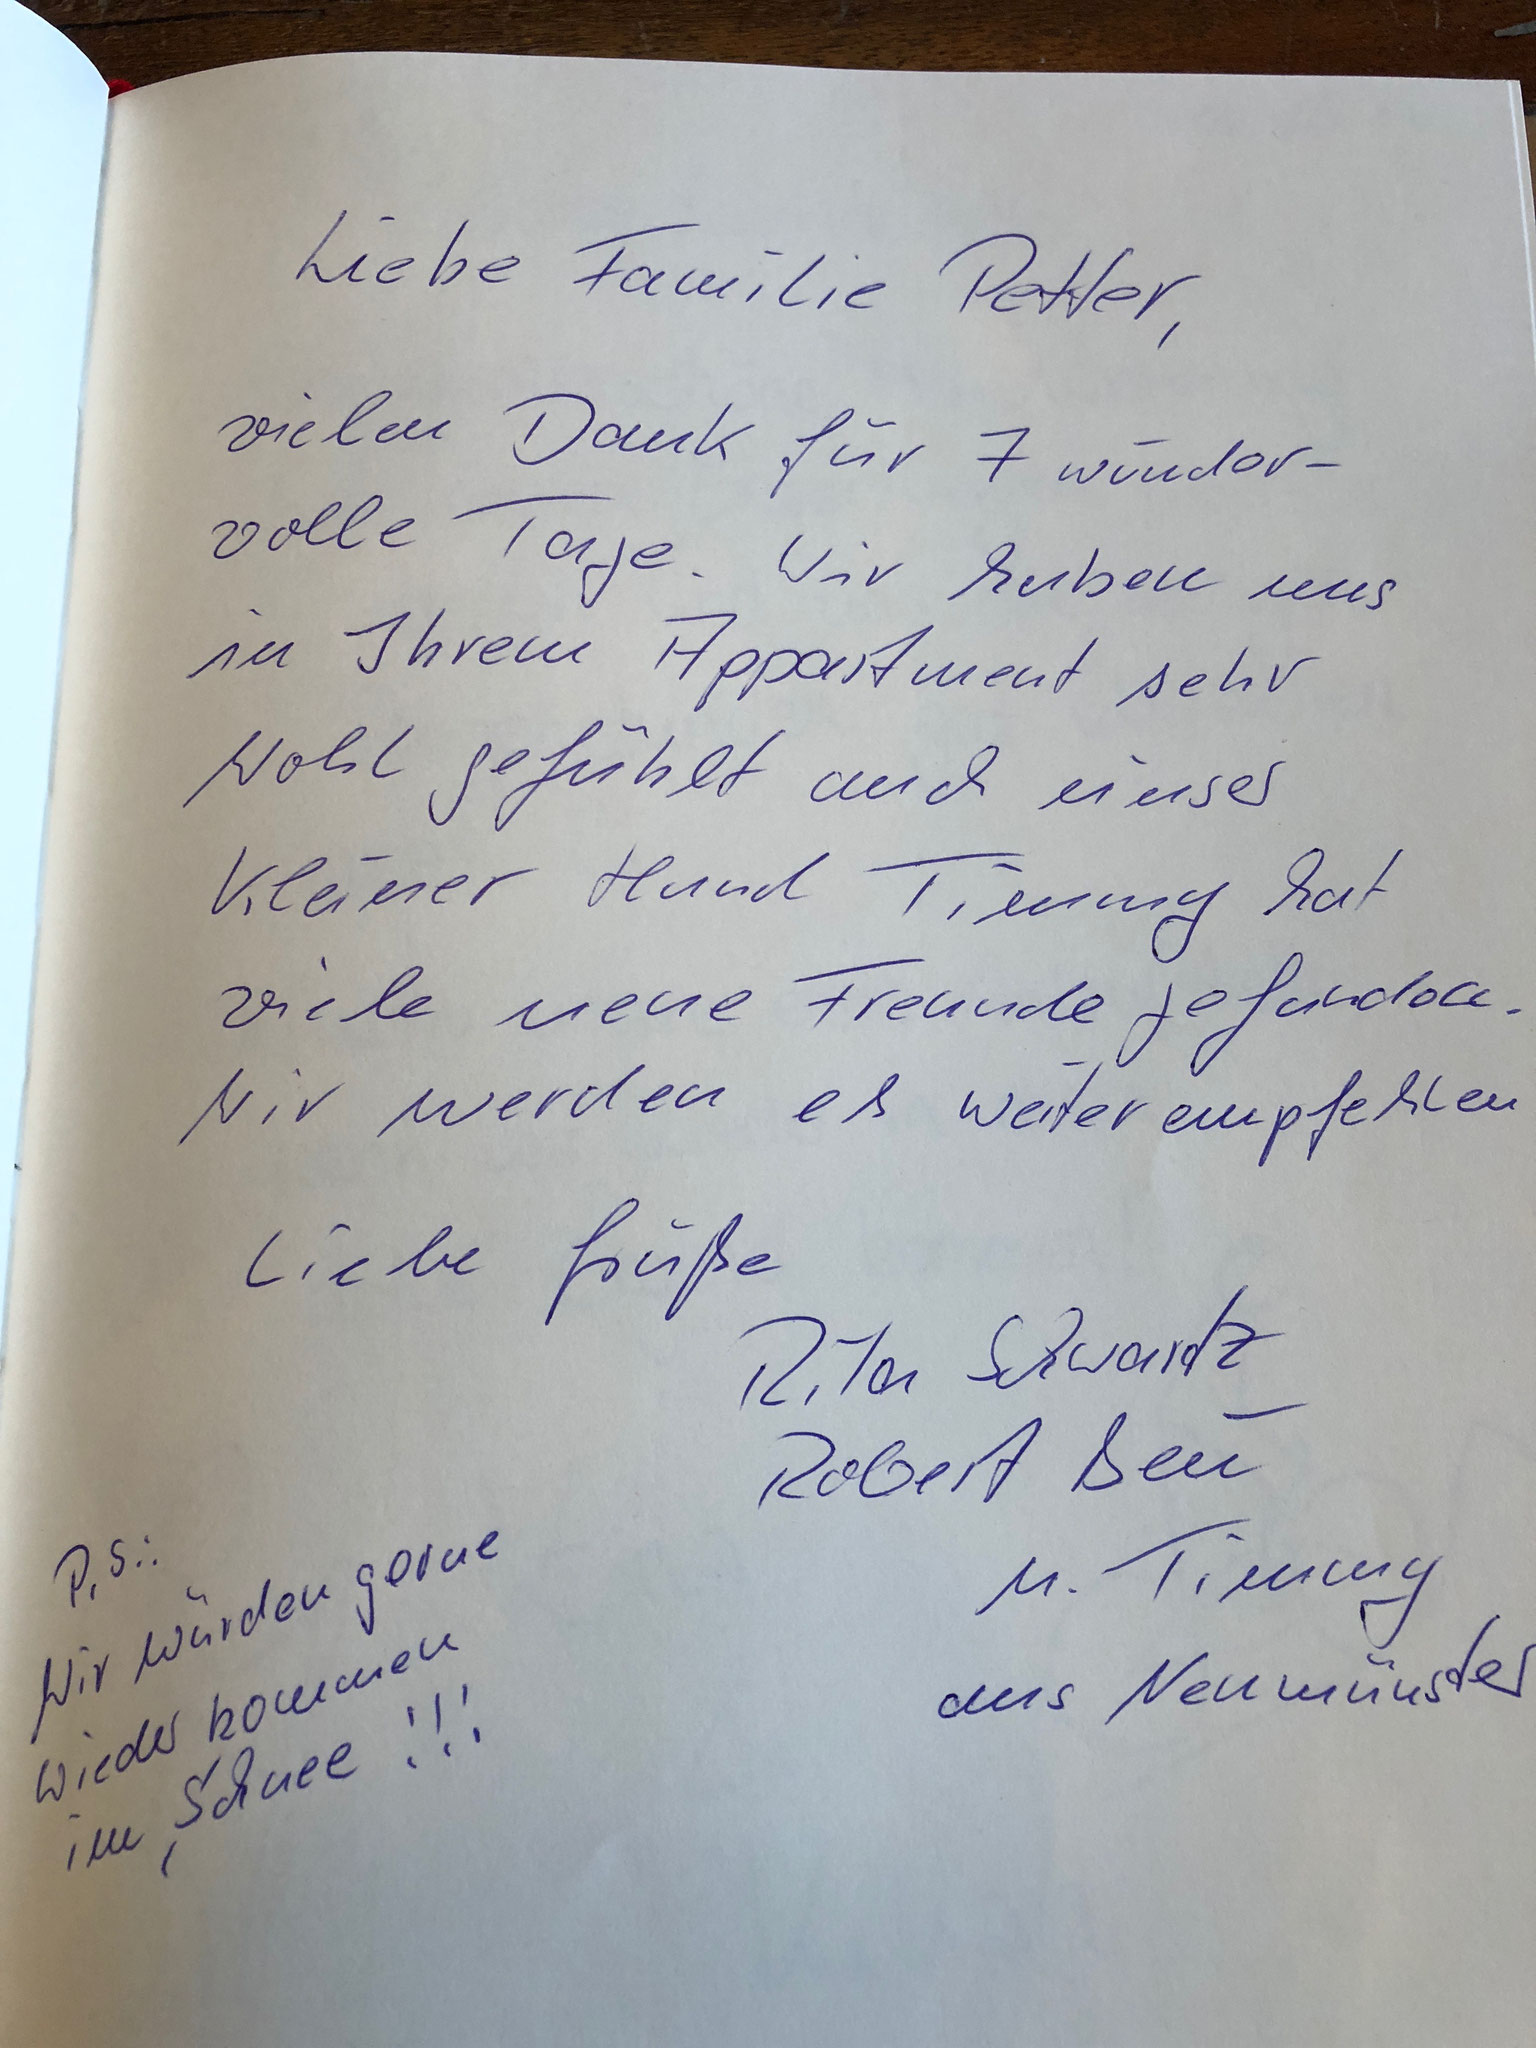 Liebe Familie Petter,
vielen Dank für 7 wunder-
volle Tage. Wir haben uns
in Ihrem Appartment sehr
wohl gefühlt auch unser
kleiner Hund Timmy hat
viele neue Freunde gefunden.
Wir werden es weiterempfehlen
Liebe Grüße
Rita Schwartz
Robert
u. Timmy
aus Neumünster
P.S.:
Wir würden gerne
wieder kommen
im Schnee !!!